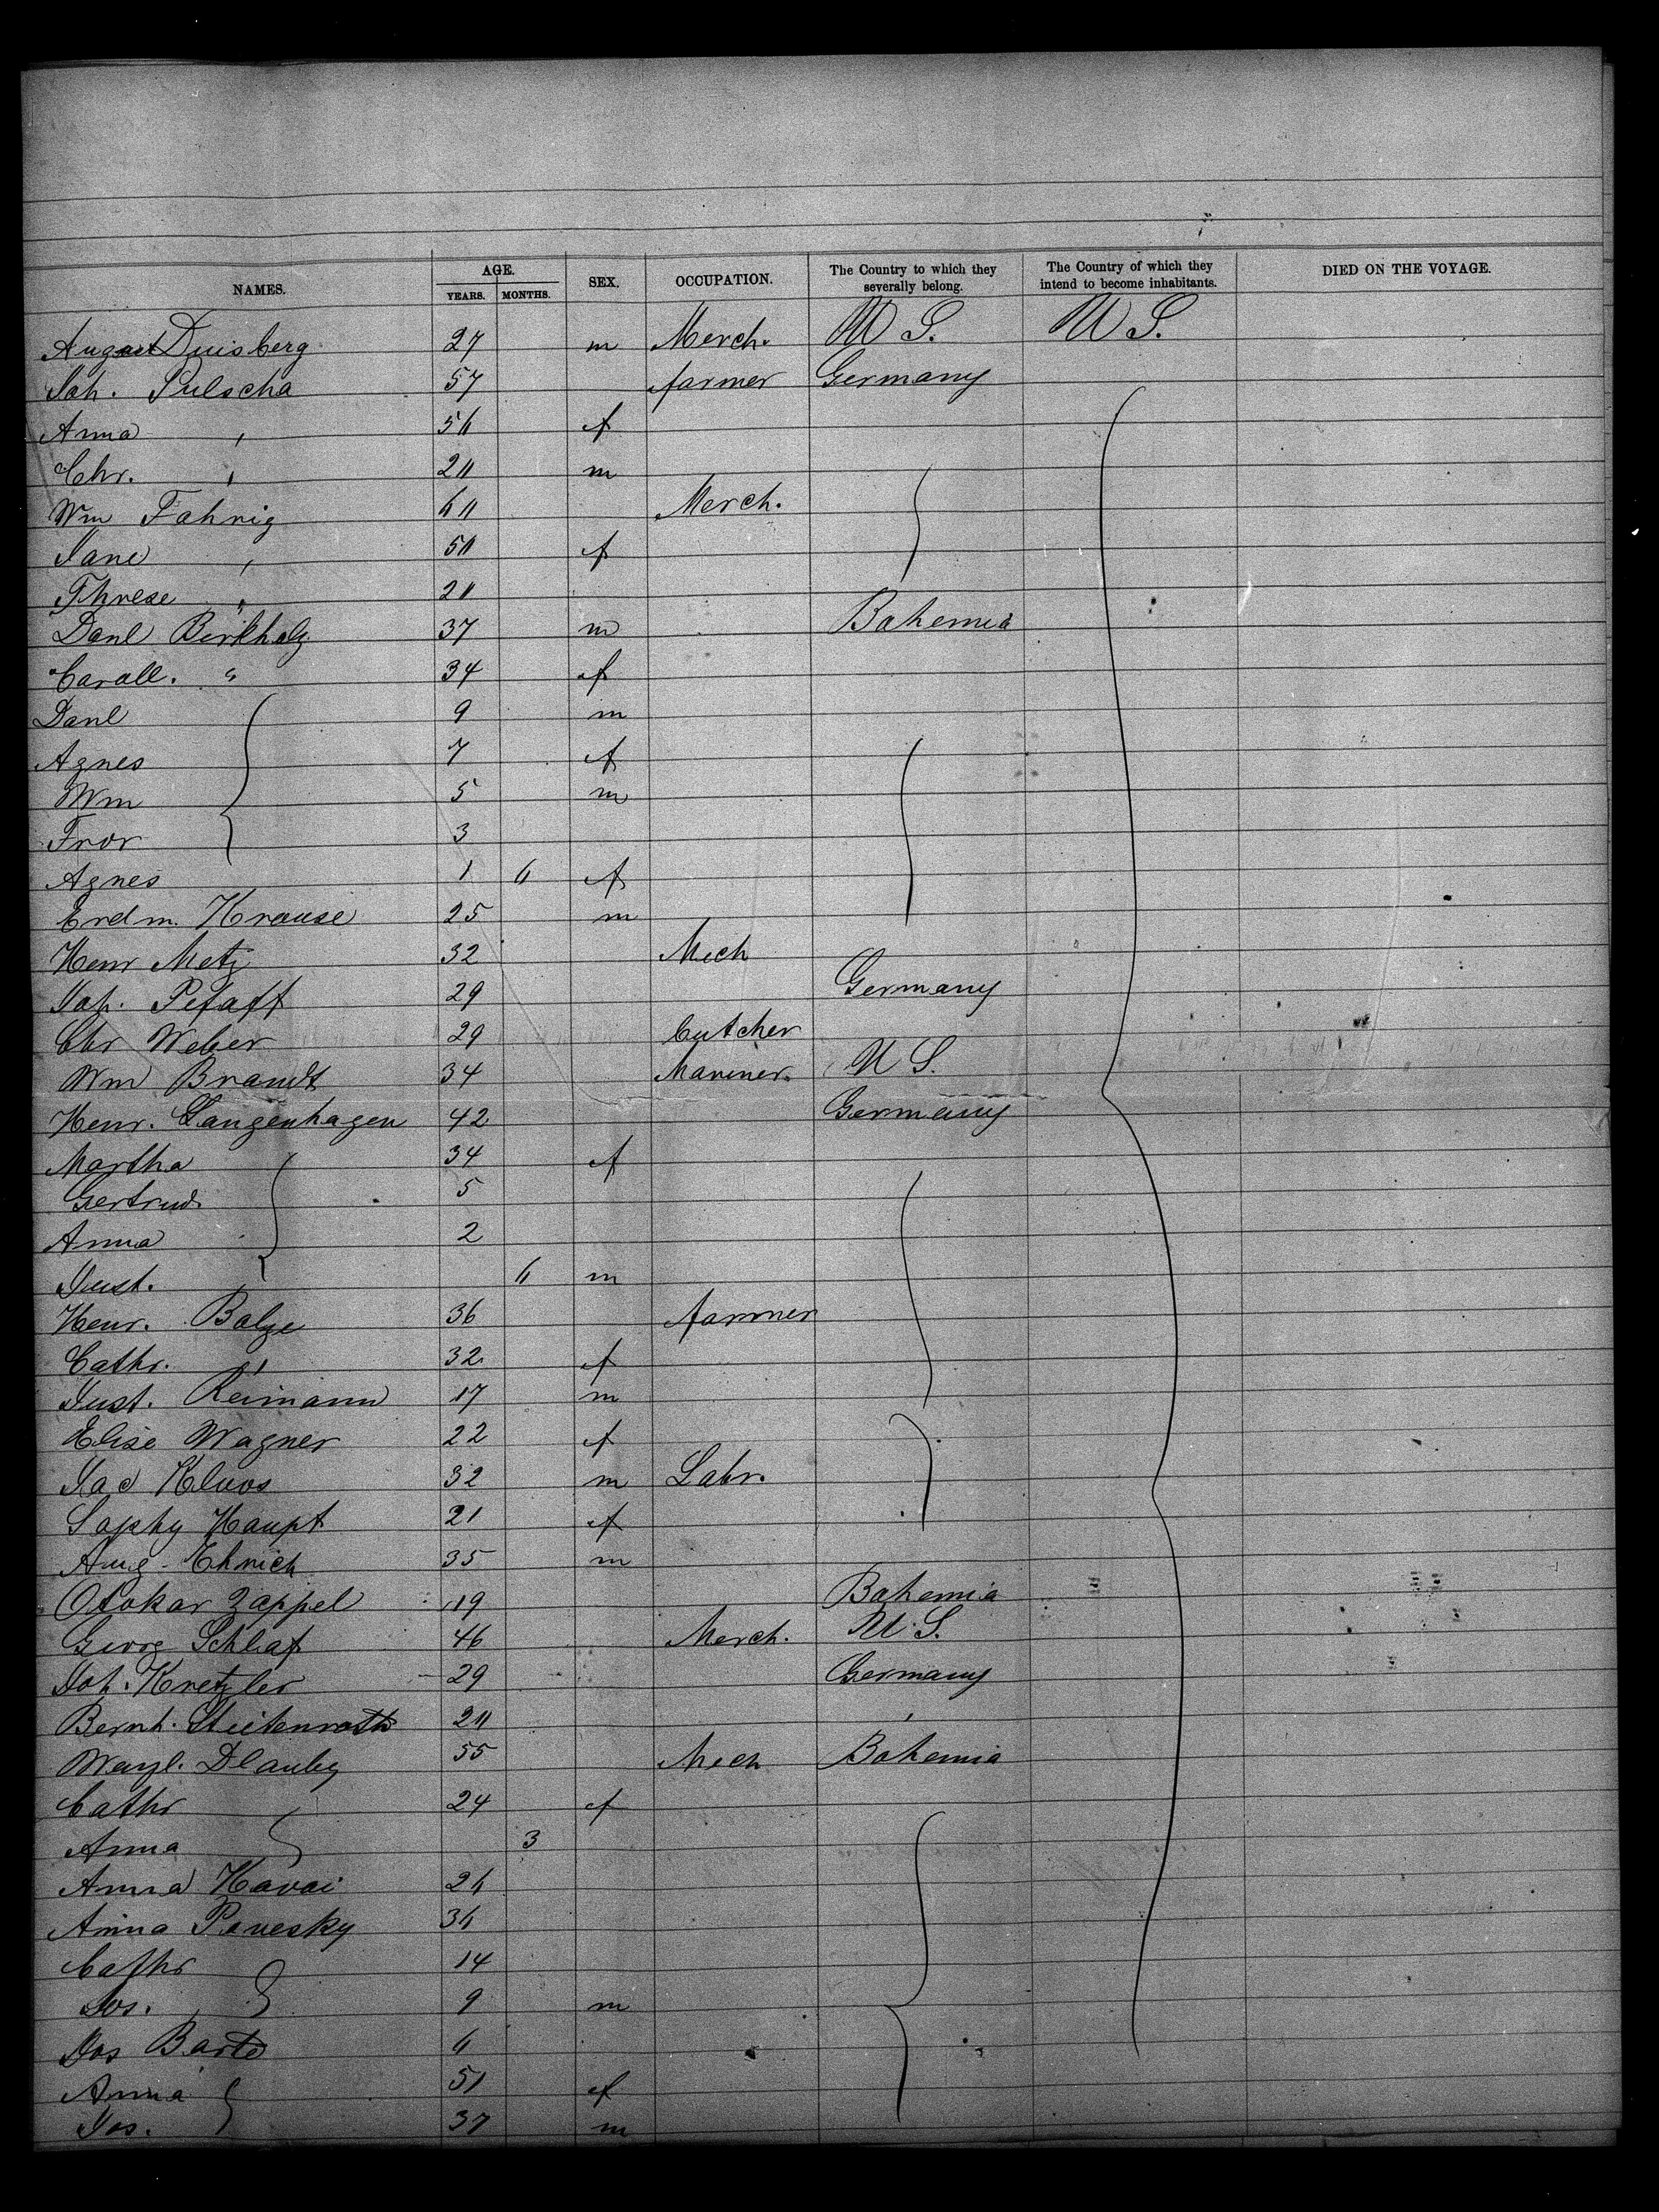 NAMES. AGE. YEARS. MONTHS. SEX. OCCUPATION. The Country to which they severally belong. The Country of which they intend to become inhabitants. DIED ON THE VOYAGE.
August Duisberg 27 m Merch. U S. U S.
Joh. Pulscha 57 farmer Germany
Anna " f
Chr. " m
Wm Fahrig Merch.
Jane " f
Threse "
Danl Berkholz 37 m Bohemia
Caroll. " 34 f
Danl 9 m
Agnes 7 f
Wm 5 m
3
Agnes 1 6 f
Erdm. Krause 25 m
Henr Metz 32 Mech
Joh. Pefaff 29 Germany
Chr Weber 29 butcher
Wm Brandt 34 Mariner U S.
Henr. Langenhagen 42 Germany
Martha 34 f
Gertrud 5
Anna 2
Gust. 6 m
Henr. Bolze 36 farmer
Cathr. " 32 f
Gust. Reimann 17 m
Elise Wagner 22 f
Jac Kloos 32 m Labr.
Sophy Haupt 21 f
Aug. Ehrich 35 m
Otokar Zappel 19 Bohemia
Georg Schlaf 46 Merch. U.S.
Joh. Kretzler 29 Germany
Bernh. "
55 Mech Bohemia
Cathr 24 f
Anna 3
Anna Havai
Anna
Cathr 14
Jos. 9 m
Jos 6
Anna 51 f
Jos. 37 m